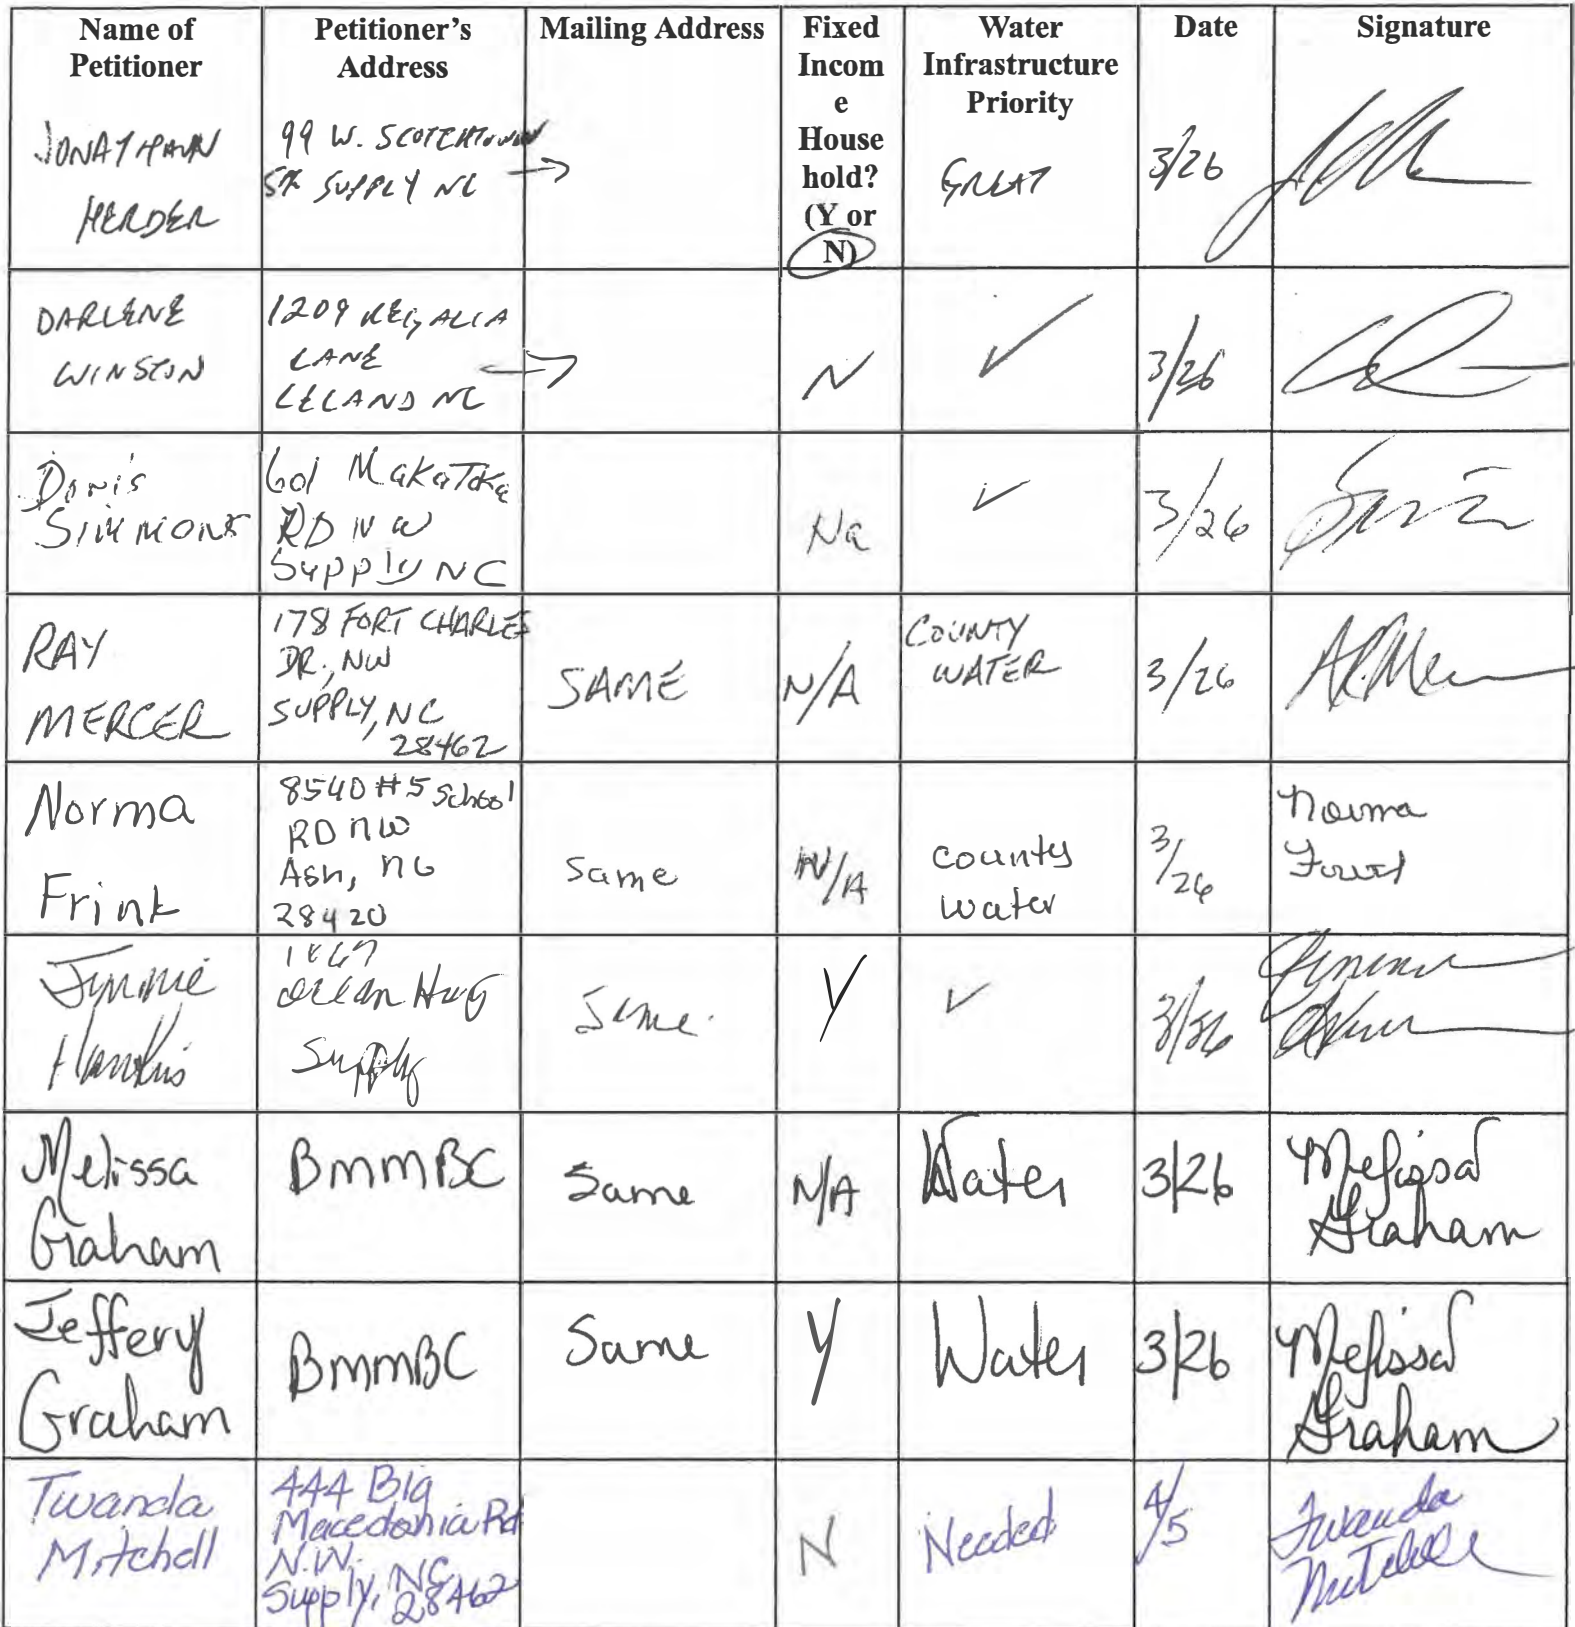 Name of Petitioner
Petitioner's Address
Mailing Address
Fixed Income Household? (Y or N)
Water Infrastructure Priority
Date
Signature
JONATHAN
HERDER
99 W. SCOTCHTOWN
ST SUPPLY NC
→
GREAT
3/26
DARLENE
WINSTON
1209 REGALIA
LANE
LELAND NC
→
N
✓
3/26
Doris
SIMMONS
601 MakaToka
RD NW
Supply NC
Na
✓
3/26
RAY
MERCER
178 FORT CHARLES
DR, NW
SUPPLY, NC
28462
SAME
N/A
COUNTY
WATER
3/26
Norma
Frink
8540 #5 School
RD NW
Ash, NC
28420
Same
N/A
county
water
3/26
Norma
Jimmie
Hankins
Ocean Hwy
Supply
Same
Y
✓
3/26
Melissa
Graham
BmmBC
Same
N/A
Water
3/26
Melissa
Graham
Jeffery
Graham
BmmBC
Same
Y
Water
3/26
Melissa
Graham
Twanda
Mitchell
444 Big
Macedonia Rd
N.W.
Supply, NC
28462
N
Needed
4/5
Twanda
Mitchell